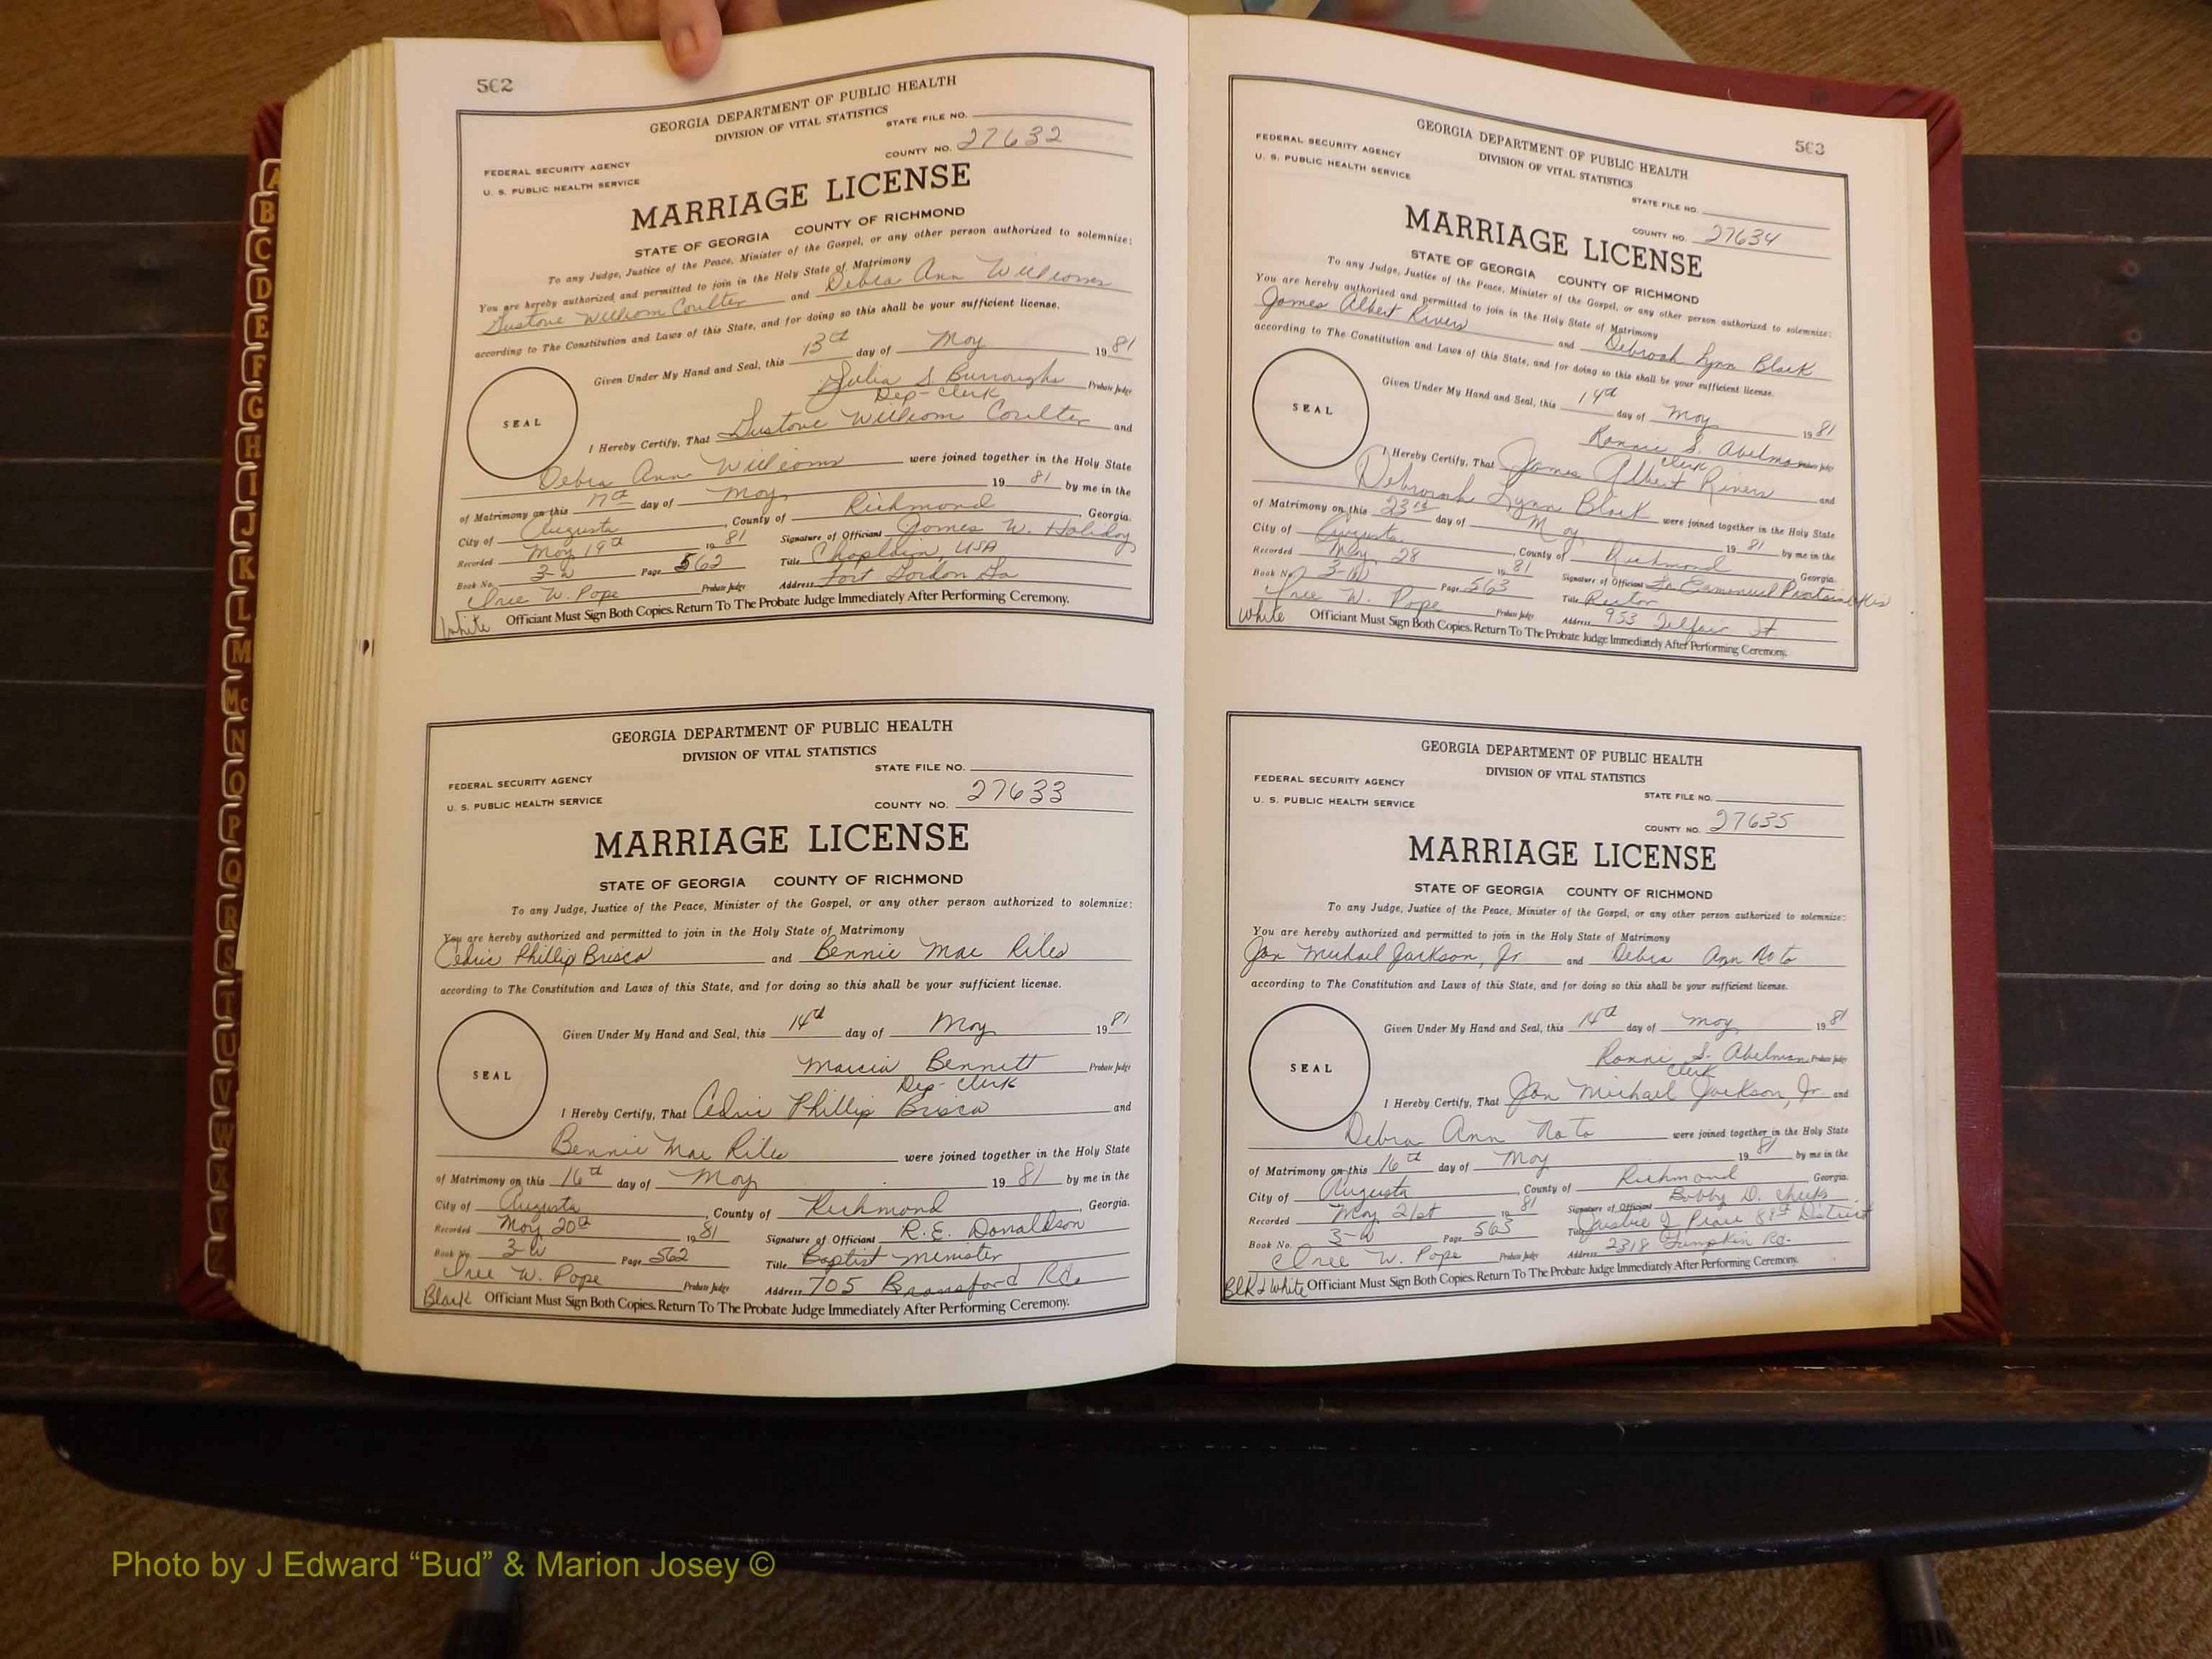 A
B
C
D
E
F
G
H
I
J
K
L
M
Mc
N
O
P
Q
R
S
T
U
V
W
X
562
GEORGIA DEPARTMENT OF PUBLIC HEALTH
DIVISION OF VITAL STATISTICS
STATE FILE NO.
FEDERAL SECURITY AGENCY
U. S. PUBLIC HEALTH SERVICE
COUNTY NO. 27632
MARRIAGE LICENSE
STATE OF GEORGIA COUNTY OF RICHMOND
To any Judge, Justice of the Peace, Minister of the Gospel, or any other person authorized to solemnize:
You are hereby authorized and permitted to join in the Holy State of Matrimony
Gustave William Coulter and Debra Ann Williams
according to The Constitution and Laws of this State, and for doing so this shall be your sufficient license.
Given Under My Hand and Seal, this 13th day of May 1981
Julia S Burroughs Probate Judge
Dep-Clerk
SEAL
I Hereby Certify, That Gustave William Coulter and
Debra Ann Williams were joined together in the Holy State
of Matrimony on this 17th day of May 1981 by me in the
City of Augusta, County of Richmond, Georgia.
Recorded May 19th 1981 Signature of Officiant James W. Holiday
Book No. 3-W Page 562 Title Chaplain, USA
Iree W. Pope Probate Judge Address Fort Gordon Ga
White Officiant Must Sign Both Copies. Return To The Probate Judge Immediately After Performing Ceremony.
GEORGIA DEPARTMENT OF PUBLIC HEALTH
DIVISION OF VITAL STATISTICS
STATE FILE NO.
FEDERAL SECURITY AGENCY
U. S. PUBLIC HEALTH SERVICE
COUNTY NO. 27633
MARRIAGE LICENSE
STATE OF GEORGIA COUNTY OF RICHMOND
To any Judge, Justice of the Peace, Minister of the Gospel, or any other person authorized to solemnize:
You are hereby authorized and permitted to join in the Holy State of Matrimony
Cedric Phillip Brisco and Bennie Mae Riles
according to The Constitution and Laws of this State, and for doing so this shall be your sufficient license.
Given Under My Hand and Seal, this 14th day of May 1981
Marcia Bennett Probate Judge
Dep-Clerk
SEAL
I Hereby Certify, That Cedric Phillip Brisco and
Bennie Mae Riles were joined together in the Holy State
of Matrimony on this 16th day of May 1981 by me in the
City of Augusta, County of Richmond, Georgia.
Recorded May 20th 1981 Signature of Officiant R.E. Donaldson
Book No. 3-W Page 562 Title Baptist Minister
Iree W. Pope Probate Judge Address 705 Bransford Rd.
Black Officiant Must Sign Both Copies. Return To The Probate Judge Immediately After Performing Ceremony.
563
GEORGIA DEPARTMENT OF PUBLIC HEALTH
DIVISION OF VITAL STATISTICS
FEDERAL SECURITY AGENCY
U. S. PUBLIC HEALTH SERVICE
STATE FILE NO.
COUNTY NO. 27634
MARRIAGE LICENSE
STATE OF GEORGIA COUNTY OF RICHMOND
To any Judge, Justice of the Peace, Minister of the Gospel, or any other person authorized to solemnize:
You are hereby authorized and permitted to join in the Holy State of Matrimony
James Albert Rivers and Deborah Lynn Black
according to The Constitution and Laws of this State, and for doing so this shall be your sufficient license.
Given Under My Hand and Seal, this 14th day of May 1981
Ronnie S. Abelman Probate Judge
Clerk
SEAL
I Hereby Certify, That James Albert Rivers and
Deborah Lynn Black were joined together in the Holy State
of Matrimony on this 23rd day of May 1981 by me in the
City of Augusta, County of Richmond Georgia.
Recorded May 28 1981 Signature of Officiant Emmanuel
Book No. 3-W Page 563 Title Rector
Iree W. Pope Probate Judge Address 953 Telfair St.
White Officiant Must Sign Both Copies. Return To The Probate Judge Immediately After Performing Ceremony.
GEORGIA DEPARTMENT OF PUBLIC HEALTH
DIVISION OF VITAL STATISTICS
FEDERAL SECURITY AGENCY
U. S. PUBLIC HEALTH SERVICE
STATE FILE NO.
COUNTY NO. 27635
MARRIAGE LICENSE
STATE OF GEORGIA COUNTY OF RICHMOND
To any Judge, Justice of the Peace, Minister of the Gospel, or any other person authorized to solemnize:
You are hereby authorized and permitted to join in the Holy State of Matrimony
Jan Michael Jackson, Jr. and Debra Ann Noto
according to The Constitution and Laws of this State, and for doing so this shall be your sufficient license.
Given Under My Hand and Seal, this 14th day of May 1981
Ronni S. Abelman Probate Judge
Clerk
SEAL
I Hereby Certify, That Jan Michael Jackson, Jr and
Debra Ann Noto were joined together in the Holy State
of Matrimony on this 16th day of May 1981 by me in the
City of Augusta, County of Richmond Georgia.
Recorded May 21st 1981 Signature of Officiant Bobby D. Cheeks
Book No. 3-W Page 563 Title Justice of Peace 89th District
Iree W. Pope Probate Judge Address 2318 Lumpkin Rd.
Blk & White Officiant Must Sign Both Copies. Return To The Probate Judge Immediately After Performing Ceremony.
Photo by J Edward “Bud” & Marion Josey ©